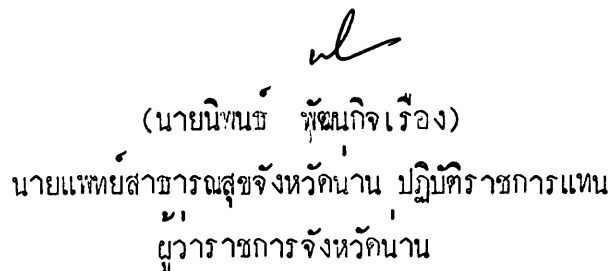 (นายนิพนธ์ พัฒนกิจเรือง)
นายแพทย์สาธารณสุขจังหวัดน่าน ปฏิบัติราชการแทน
ผู้ว่าราชการจังหวัดน่าน